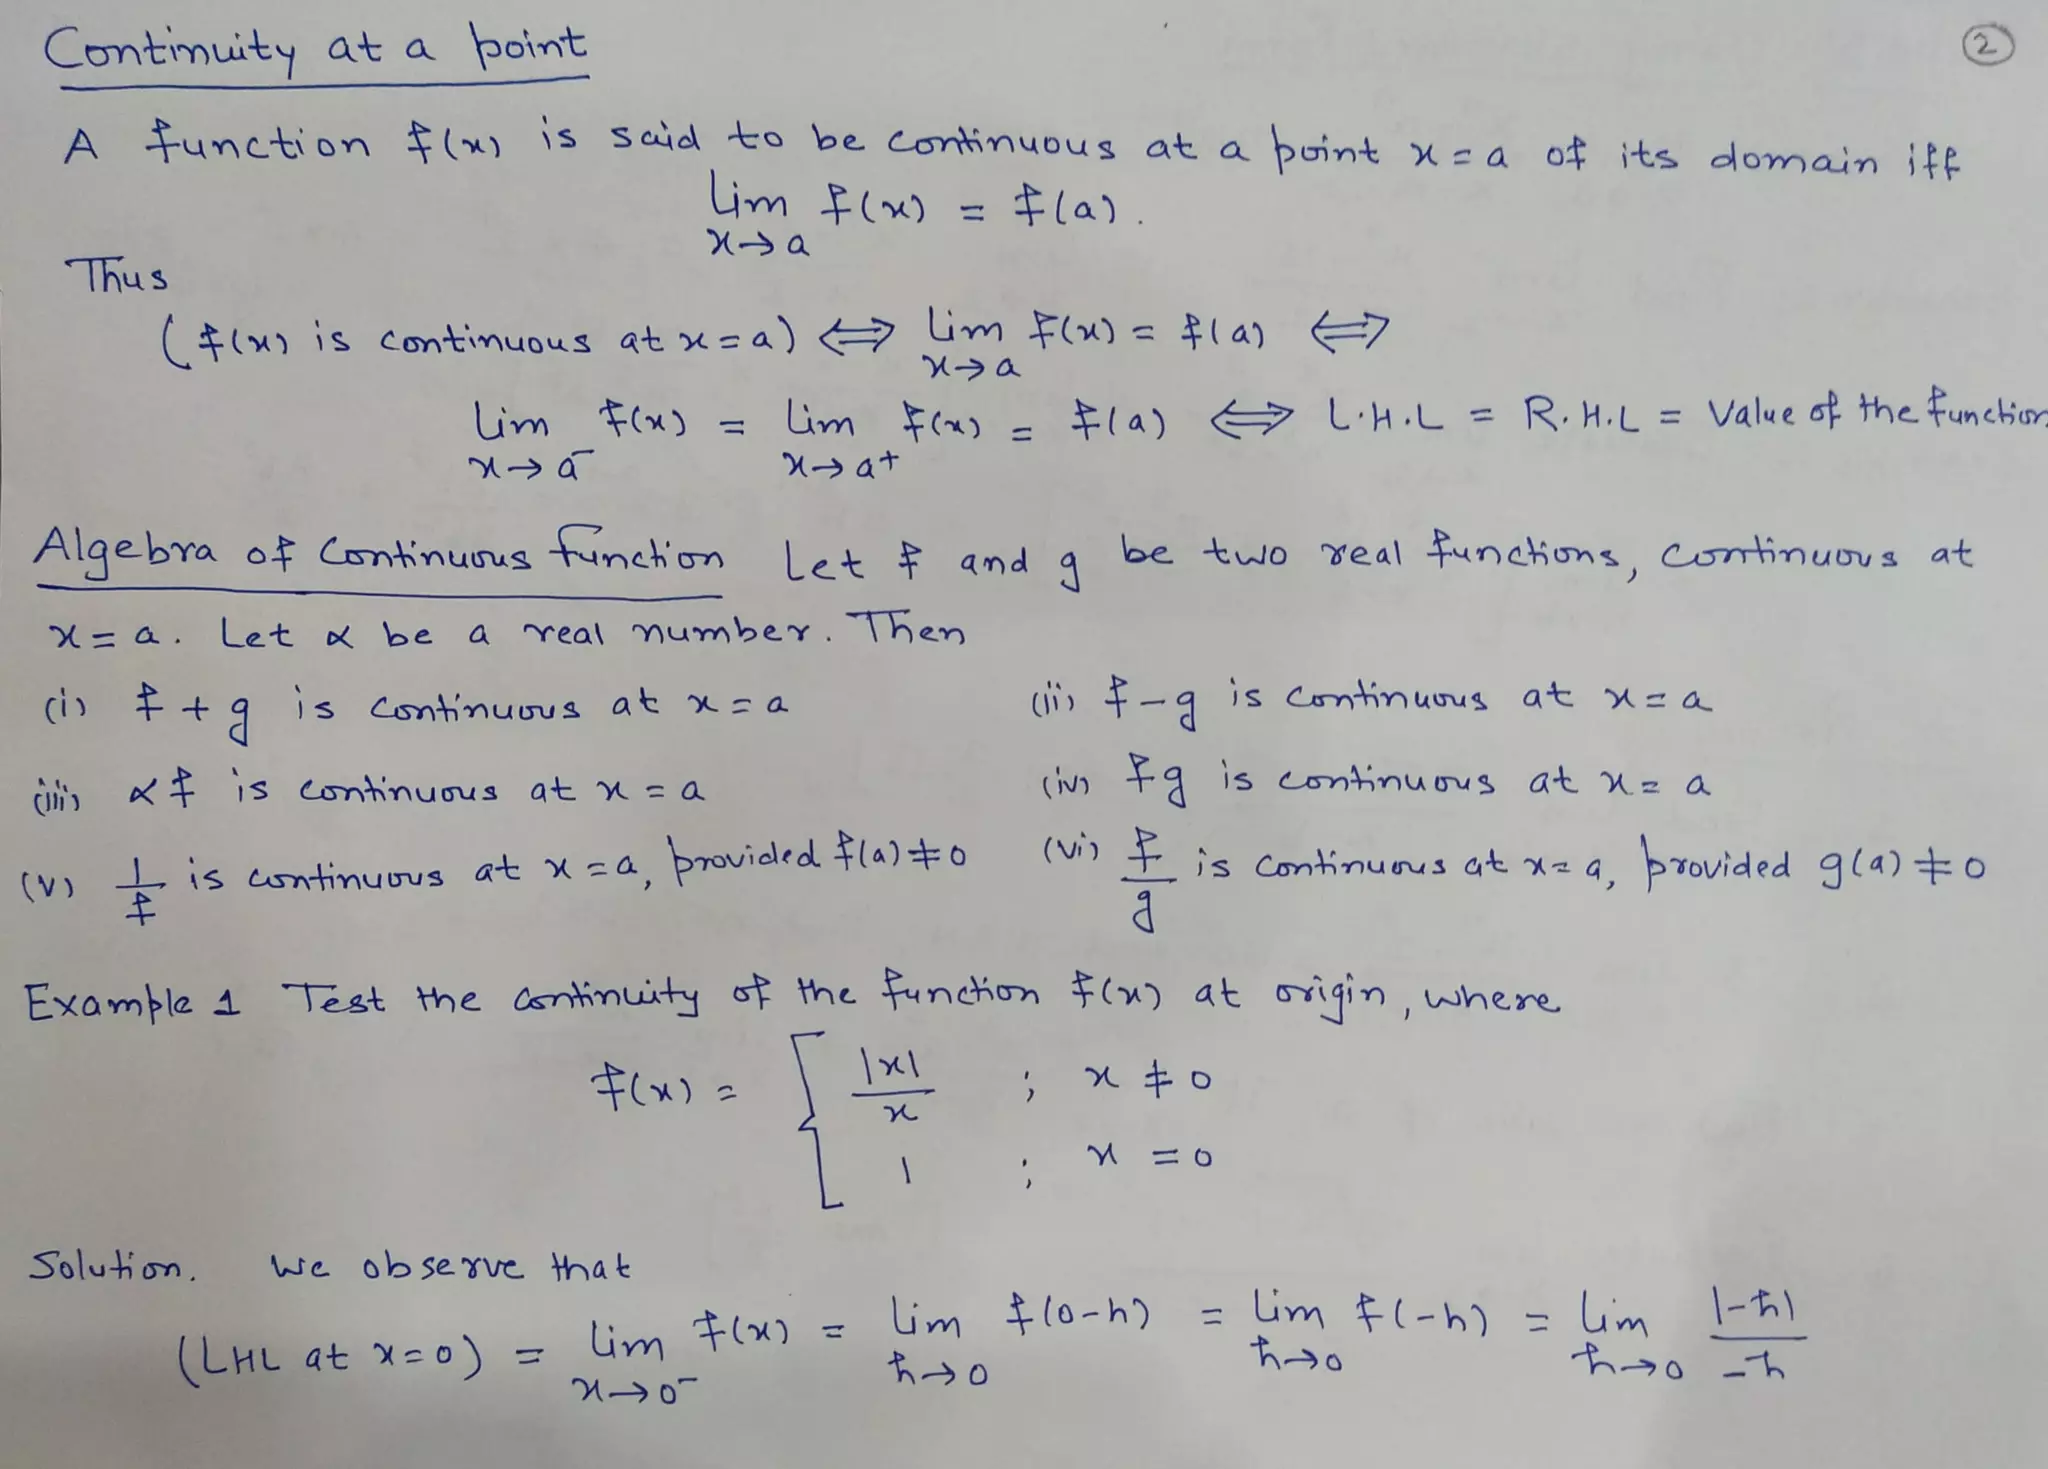 Continuity at a point
2
A function f(x) is said to be continuous at a point x = a of its domain iff
lim f(x) = f(a).
x→a
Thus
(f(x) is continuous at x = a) ⇔ lim f(x) = f(a) ⇔
x→a
lim f(x) = lim f(x) = f(a) ⇔ L.H.L = R.H.L = Value of the function
x→a⁻ x→a+
Algebra of Continuous function Let f and g be two real functions, continuous at
x = a. Let α be a real number. Then
(i) f + g is continuous at x = a (ii) f - g is continuous at x = a
(iii) αf is continuous at x = a (iv) fg is continuous at x = a
(v) 1/f is continuous at x = a, provided f(a) ≠ 0 (vi) f/g is continuous at x = a, provided g(a) ≠ 0
Example 1 Test the continuity of the function f(x) at origin, where
f(x) = { |x|/x ; x ≠ 0
1 ; x = 0
Solution. We observe that
(LHL at x=0) = lim f(x) = lim f(0-h) = lim f(-h) = lim |-h|/-h
x→0⁻ h→0 h→0 h→0